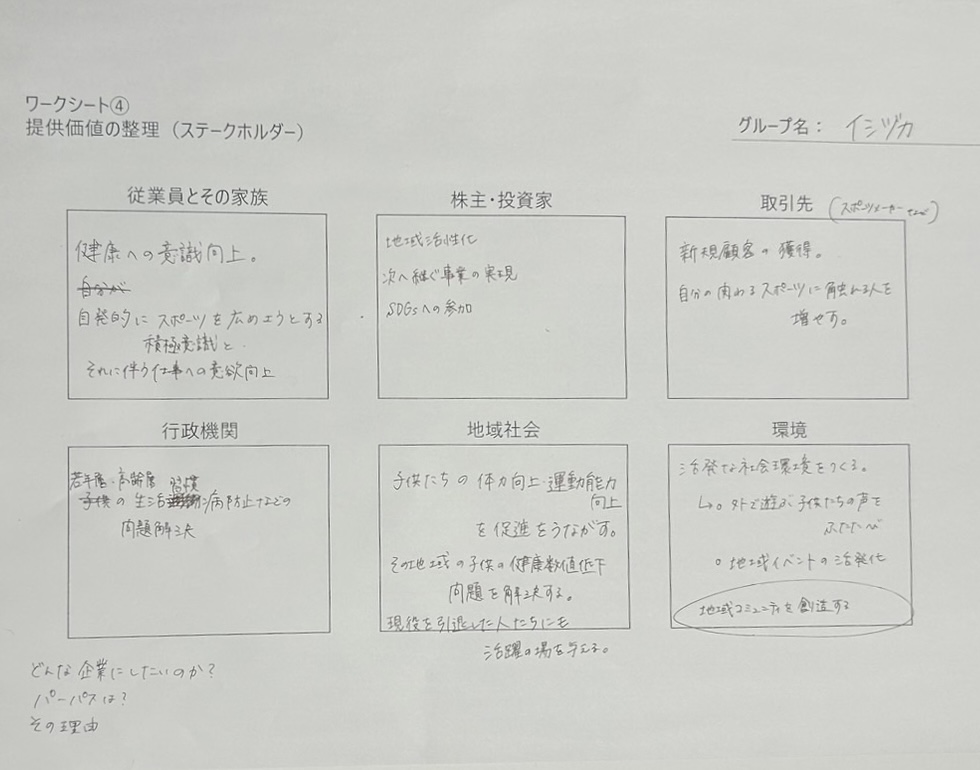 ワークシート④
提供価値の整理（ステークホルダー）
グループ名： イシヅカ
従業員とその家族
健康への意識向上。
自分が
自発的にスポーツを広めようとする
積極意識と
それに伴う仕事への意欲向上
株主・投資家
地域活性化
次へ継ぐ事業の実現
SDGsへの参加
取引先 (スポーツメーカーなど)
新規顧客の獲得。
自分の関わるスポーツに触れる人を
増やす。
行政機関
若年層・高齢層 習慣
子供の生活病防止などの
問題解決
地域社会
子供たちの体力向上・運動能力
向上
を促進をうながす。
その地域の子供の健康数値低下
問題を解決する。
現役を引退した人たちにも
活躍の場を与える。
環境
活発な社会環境をつくる。
↳。外で遊ぶ子供たちの声を
ふたたび
。地域イベントの活発化
地域コミュニティを創造する
どんな企業にしたいのか？
パーパスは？
その理由